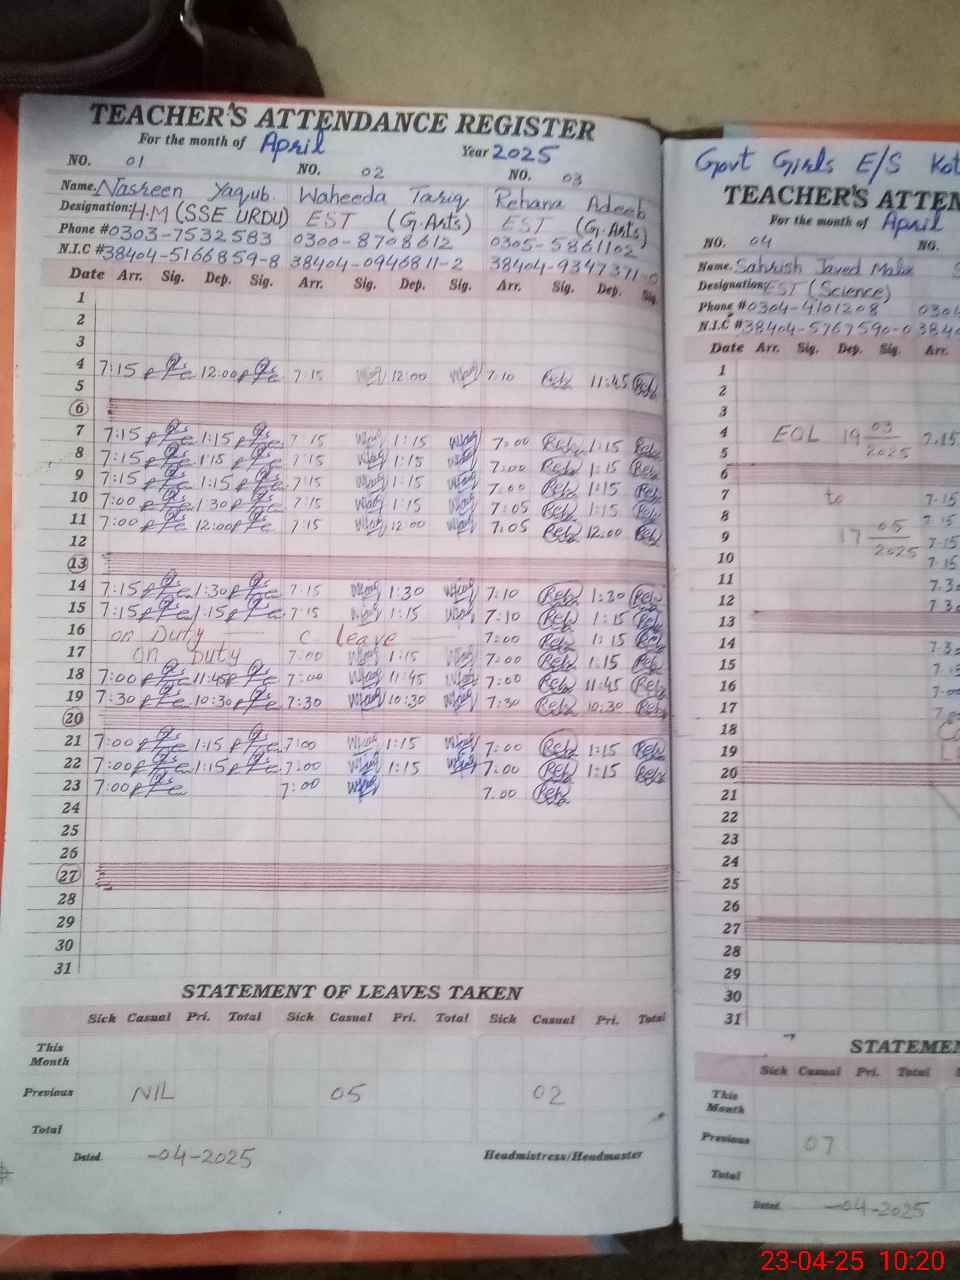 TEACHER'S ATTENDANCE REGISTER
For the month of April Year 2025
NO. 01 NO. 02 NO. 03
Name. Nasreen Yaqub. Waheeda Tariq Rehana Adeeb
Designation: H.M (SSE URDU) EST (G.Arts) EST (G.Arts)
Phone # 0303-7532583 0300-8708612 0305-5861102
N.I.C # 38404-5166859-8 38404-0946811-2 38404-9347371-0
Date Arr. Sig. Dep. Sig. Arr. Sig. Dep. Sig. Arr. Sig. Dep. Sig.
1
2
3
4 7:15 12:00 7:15 12:00 7:10 11:45
5
6
7 7:15 1:15 7:15 1:15 7:00 1:15
8 7:15 1:15 7:15 1:15 7:00 1:15
9 7:15 1:15 7:15 1:15 7:00 1:15
10 7:00 1:30 7:15 1:15 7:05 1:15
11 7:00 12:00 7:15 12:00 7:05 12:00
12
13
14 7:15 1:30 7:15 1:30 7:10 1:30
15 7:15 1:15 7:15 1:15 7:10 1:15
16 on Duty C leave 7:00 1:15
17 on Duty 7:00 1:15 7:00 1:15
18 7:00 11:45 7:00 11:45 7:00 11:45
19 7:30 10:30 7:30 10:30 7:30 10:30
20
21 7:00 1:15 7:00 1:15 7:00 1:15
22 7:00 1:15 7:00 1:15 7:00 1:15
23 7:00 7:00 7:00
24
25
26
27
28
29
30
31
STATEMENT OF LEAVES TAKEN
Sick Casual Pri. Total Sick Casual Pri. Total Sick Casual Pri. Total
This Month
Previous NIL 05 02
Total
Dated. -04-2025 Headmistress/Headmaster
Govt Girls E/S Kot
TEACHER'S ATTEN
For the month of April
NO. 04 NO.
Name. Sahrish Javed Malik
Designation: EST (Science)
Phone # 0304-4101208 0304
N.I.C # 38404-5767590-0 3840
Date Arr. Sig. Dep. Sig. Arr.
1
2
3
4 EOL 19 03 2025 7:15
5
6
7 to 7:15
8 7:15
9 17 05 2025 7:15
10 7:15
11 7:3
12 7:3
13
14 7:3
15 7:15
16 7:00
17
18
19
20
21
22
23
24
25
26
27
28
29
30
31
STATEMEN
Sick Casual Pri. Total
This Month
Previous 07
Total
Dated. -04-2025
23-04-25 10:20